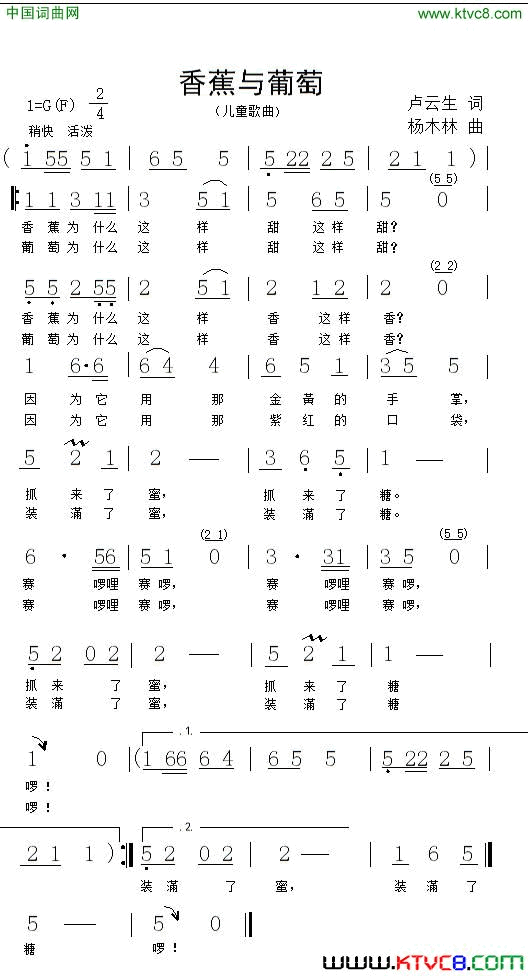 中国词曲网 www.ktvc8.com
香蕉与葡萄
（儿童歌曲）
1=G(F) 2/4
卢云生 词
杨木林 曲
稍快 活泼
( 1 55 5 1 | 6 5 5 | 5 22 2 5 | 2 1 1 ) |
(5 5)
1 1 3 11 | 3 5 1 | 5 6 5 | 5 0 |
香 蕉 为 什么 这 样 甜 这样 甜？
葡 萄 为 什么 这 样 甜 这样 甜？
(2 2)
5 5 2 55 | 2 5 1 | 2 1 2 | 2 0 |
香 蕉 为 什么 这 样 香 这样 香？
葡 萄 为 什么 这 样 香 这样 香？
1 6·6 | 6 4 4 | 6 5 1 | 3 5 5 |
因 为它 用 那 金 黃 的 手 掌，
因 为它 用 那 紫 红 的 口 袋，
5 2 1 | 2 — | 3 6 5 | 1 — |
抓 来 了 蜜， 抓 来 了 糖。
装 滿 了 蜜， 装 滿 了 糖。
(2 1) (5 5)
6 · 56 | 5 1 0 | 3 · 31 | 3 5 0 |
赛 啰哩 赛 啰， 赛 啰哩 赛 啰，
赛 啰哩 赛 啰， 赛 啰哩 赛 啰，
5 2 0 2 | 2 — | 5 2 1 | 1 — |
抓 来 了 蜜， 抓 来 了 糖
装 滿 了 蜜， 装 滿 了 糖
.1.
1 0 | (1 66 6 4 | 6 5 5 | 5 22 2 5 |
啰！
啰！
.2.
2 1 1 ) :| 5 2 0 2 | 2 — | 1 6 5 |
装 滿 了 蜜， 装 滿 了
5 — | 5 0 |
糖 啰！
www.KTVC8.com